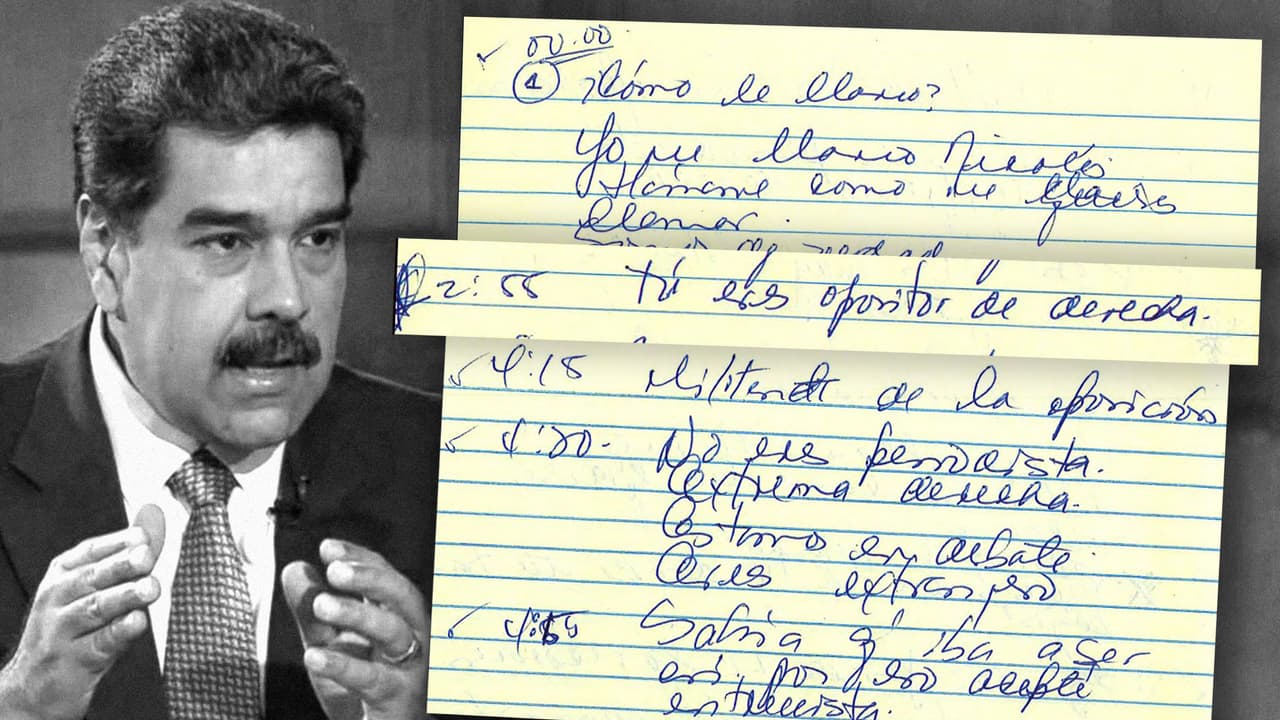 00:00
① ¿Cómo le llamo?
Yo me llamo Nicolás
Llámame como me quieras
llamar.
2:55 Tú eres opositor de derecha.
4:15 Militante de la oposición
4:20- No eres periodista.
extrema derecha.
Estamos en debate
Eres extranjero
4:55 Sabía q' iba a ser
así, por eso acepté
entrevista.